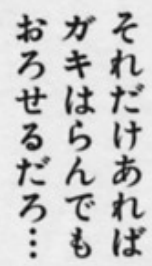 それだけあれば
ガキはらんでも
おろせるだろ…